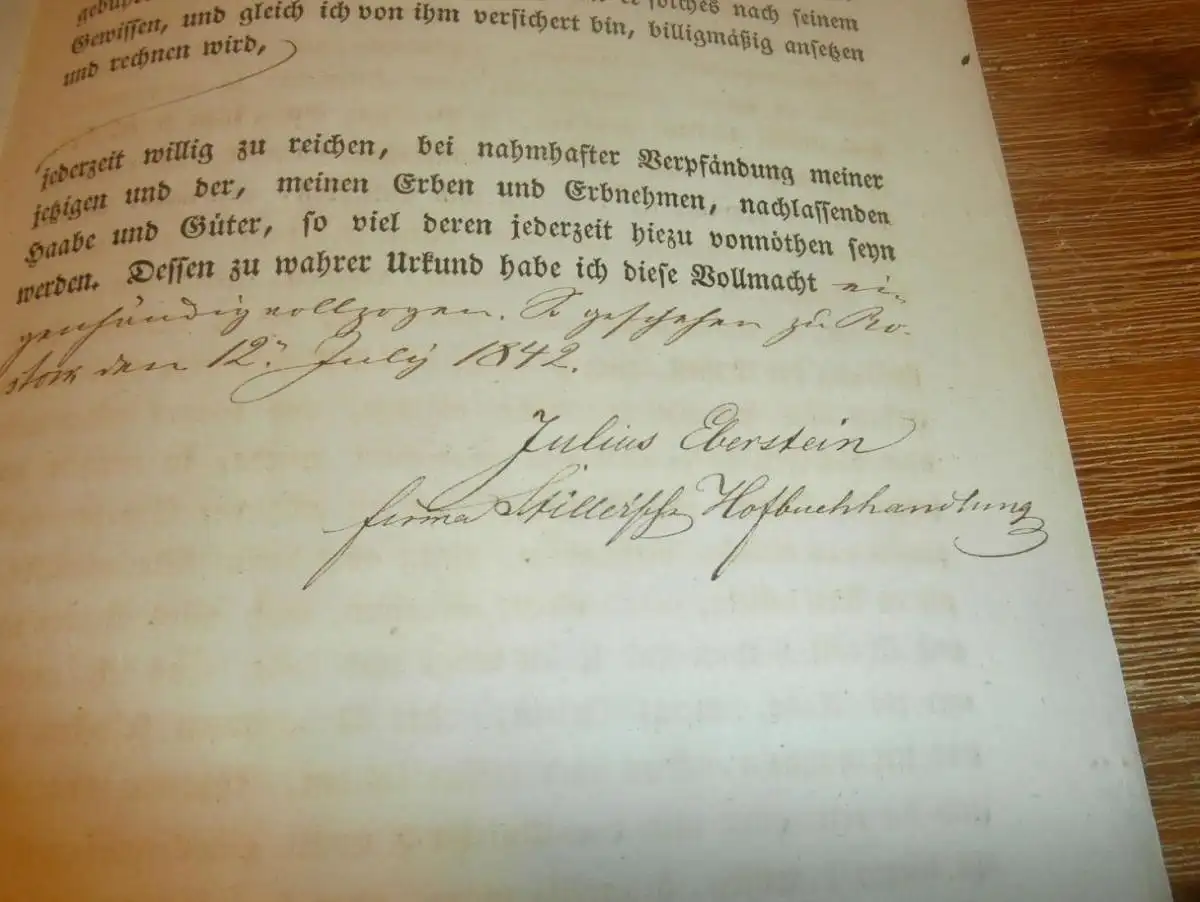 er solches nach seinem
Gewissen, und gleich ich von ihm versichert bin, billigmäßig ansetzen
und rechnen wird,
jederzeit willig zu reichen, bei nahmhafter Verpfändung meiner
jetzigen und der, meinen Erben und Erbnehmen, nachlassenden
Haabe und Güter, so viel deren jederzeit hiezu vonnöthen seyn
werden. Dessen zu wahrer Urkund habe ich diese Vollmacht ei-
genhändig vollzogen. So geschehen zu Ro-
stock den 12. July 1842.
Julius Eberstein
firma Stillersche Hofbuchhandlung